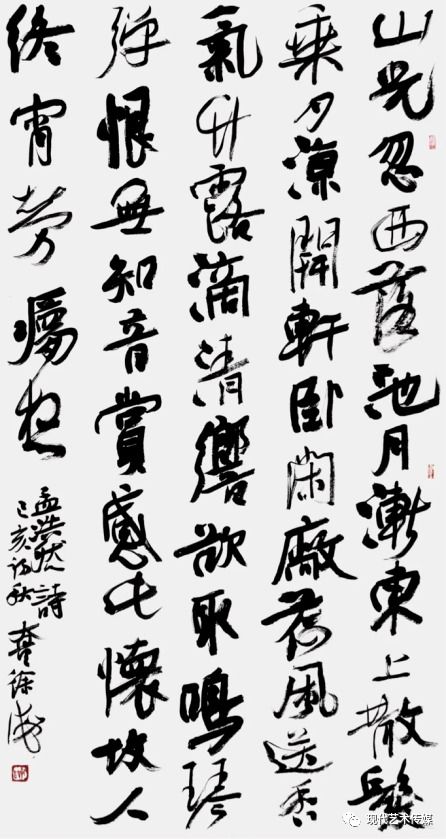 山光忽西落池月漸東上散髮
乘夕涼開軒卧閑廠荷風送香
氣竹露滴清響欲取鳴琴
弹恨無知音賞感此懷故人
終宵劳夢想
孟浩然詩
己亥初秋
现代艺术传媒